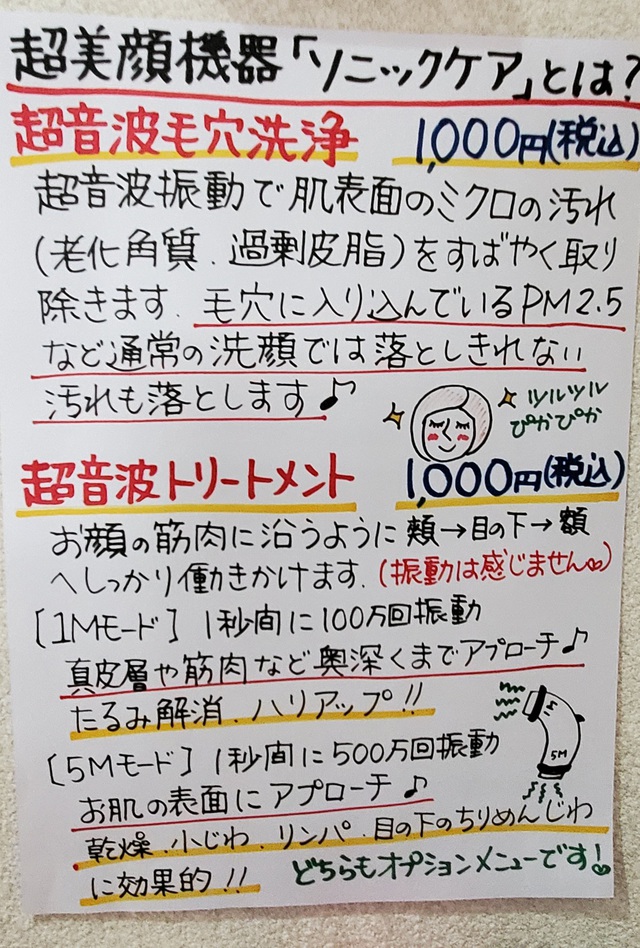 超美顔機器「ソニックケア」とは?
超音波毛穴洗浄 1,000円(税込)
超音波振動で肌表面のミクロの汚れ
(老化角質、過剰皮脂)をすばやく取り
除きます、毛穴に入り込んでいるPM2.5
など通常の洗顔では落としきれない
汚れも落とします♪
ツルツル
ぴかぴか
超音波トリートメント 1,000円(税込)
お顔の筋肉に沿うように 頬→目の下→額
へしっかり働きかけます、(振動は感じません♡)
[1Mモード] 1秒間に100万回振動
真皮層や筋肉など奥深くまでアプローチ♪
たるみ解消、ハリアップ!!
[5Mモード] 1秒間に500万回振動
お肌の表面にアプローチ♪
乾燥、小じわ、リンパ、目の下のちりめんじわ
に効果的!!
5M
どちらもオプションメニューです!